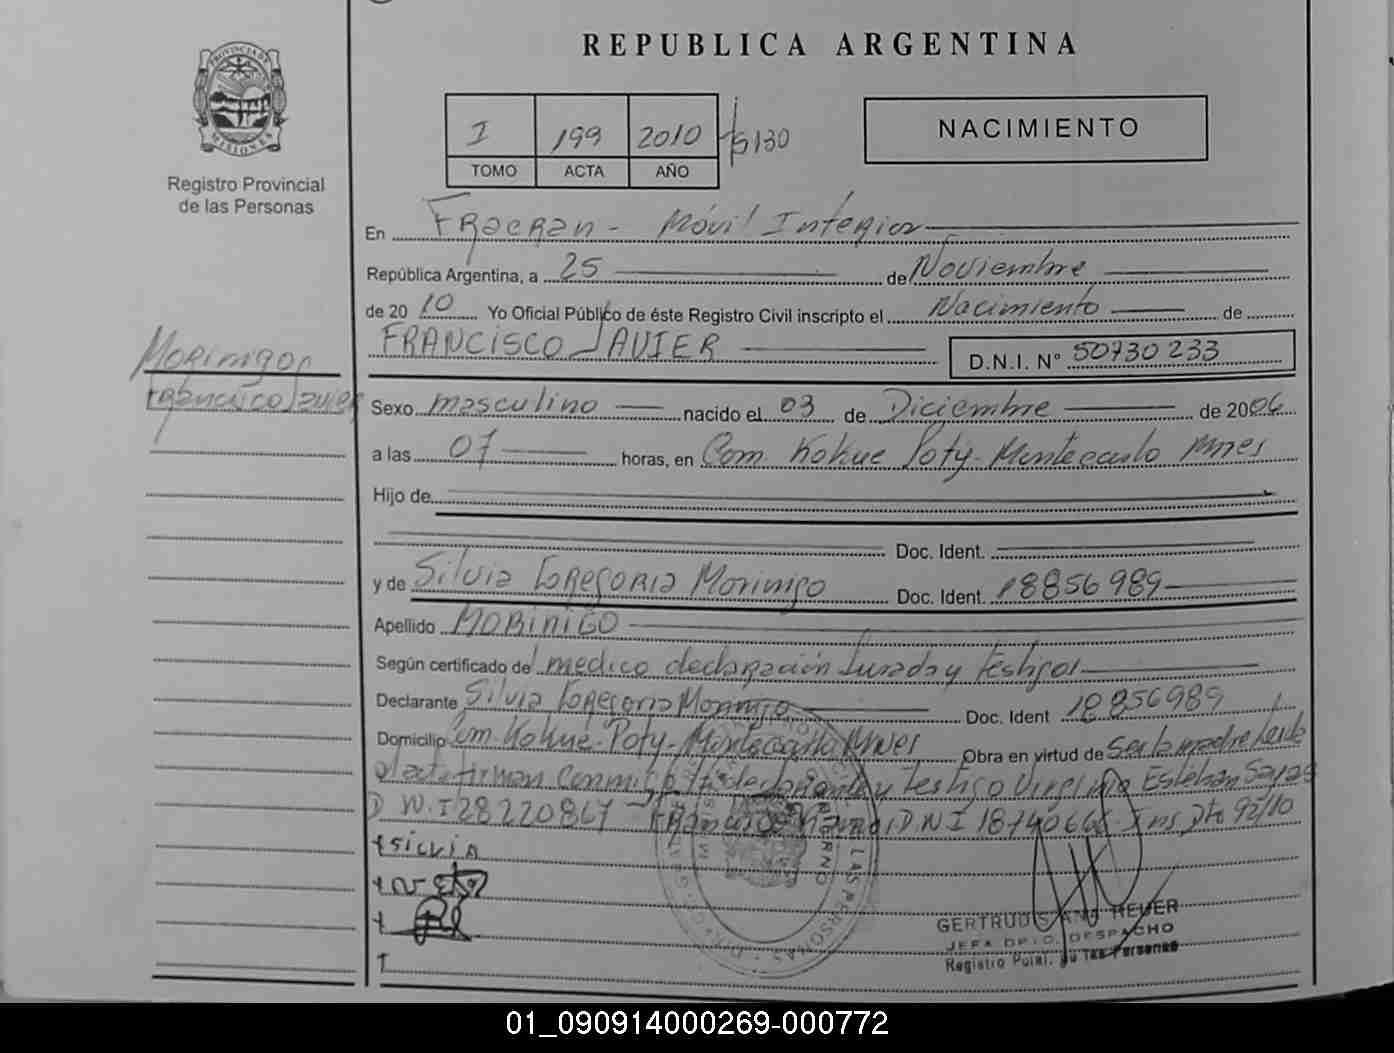 REPUBLICA ARGENTINA
PROVINCIA DE MISIONES
Registro Provincial
de las Personas
I 199 2010 Fº 130
TOMO ACTA AÑO
NACIMIENTO
En Fracran - Móvil Interior
República Argentina, a 25 de Noviembre
de 2010 Yo Oficial Público de éste Registro Civil inscripto el Nacimiento de
FRANCISCO JAVIER D.N.I. Nº 50730233
MORINIGO
Francisco Javier
Sexo masculino nacido el 03 de Diciembre de 2006
a las 07 horas, en Com. Kokue Poty - Montecarlo Mnes
Hijo de
Doc. Ident.
y de Silvia Gregoria Morinigo Doc. Ident. 18856989
Apellido MORINIGO
Según certificado del medico declaración Jurada y testigos
Declarante Silvia Gregoria Morinigo Doc. Ident 18856989
Domicilio Com. Kokue - Poty - Montecarlo Mnes Obra en virtud de Ser la madre Leida
el acta firman conmigo la declarante y testigo Virginio Esteban
D N.I 28220867 D.N I Ins. Dto 92/10
+ SILVIA
GERTRUDIS ANA HEUER
JEFA DPTO. DESPACHO
Registro Pcial. de las Personas
01_090914000269-000772